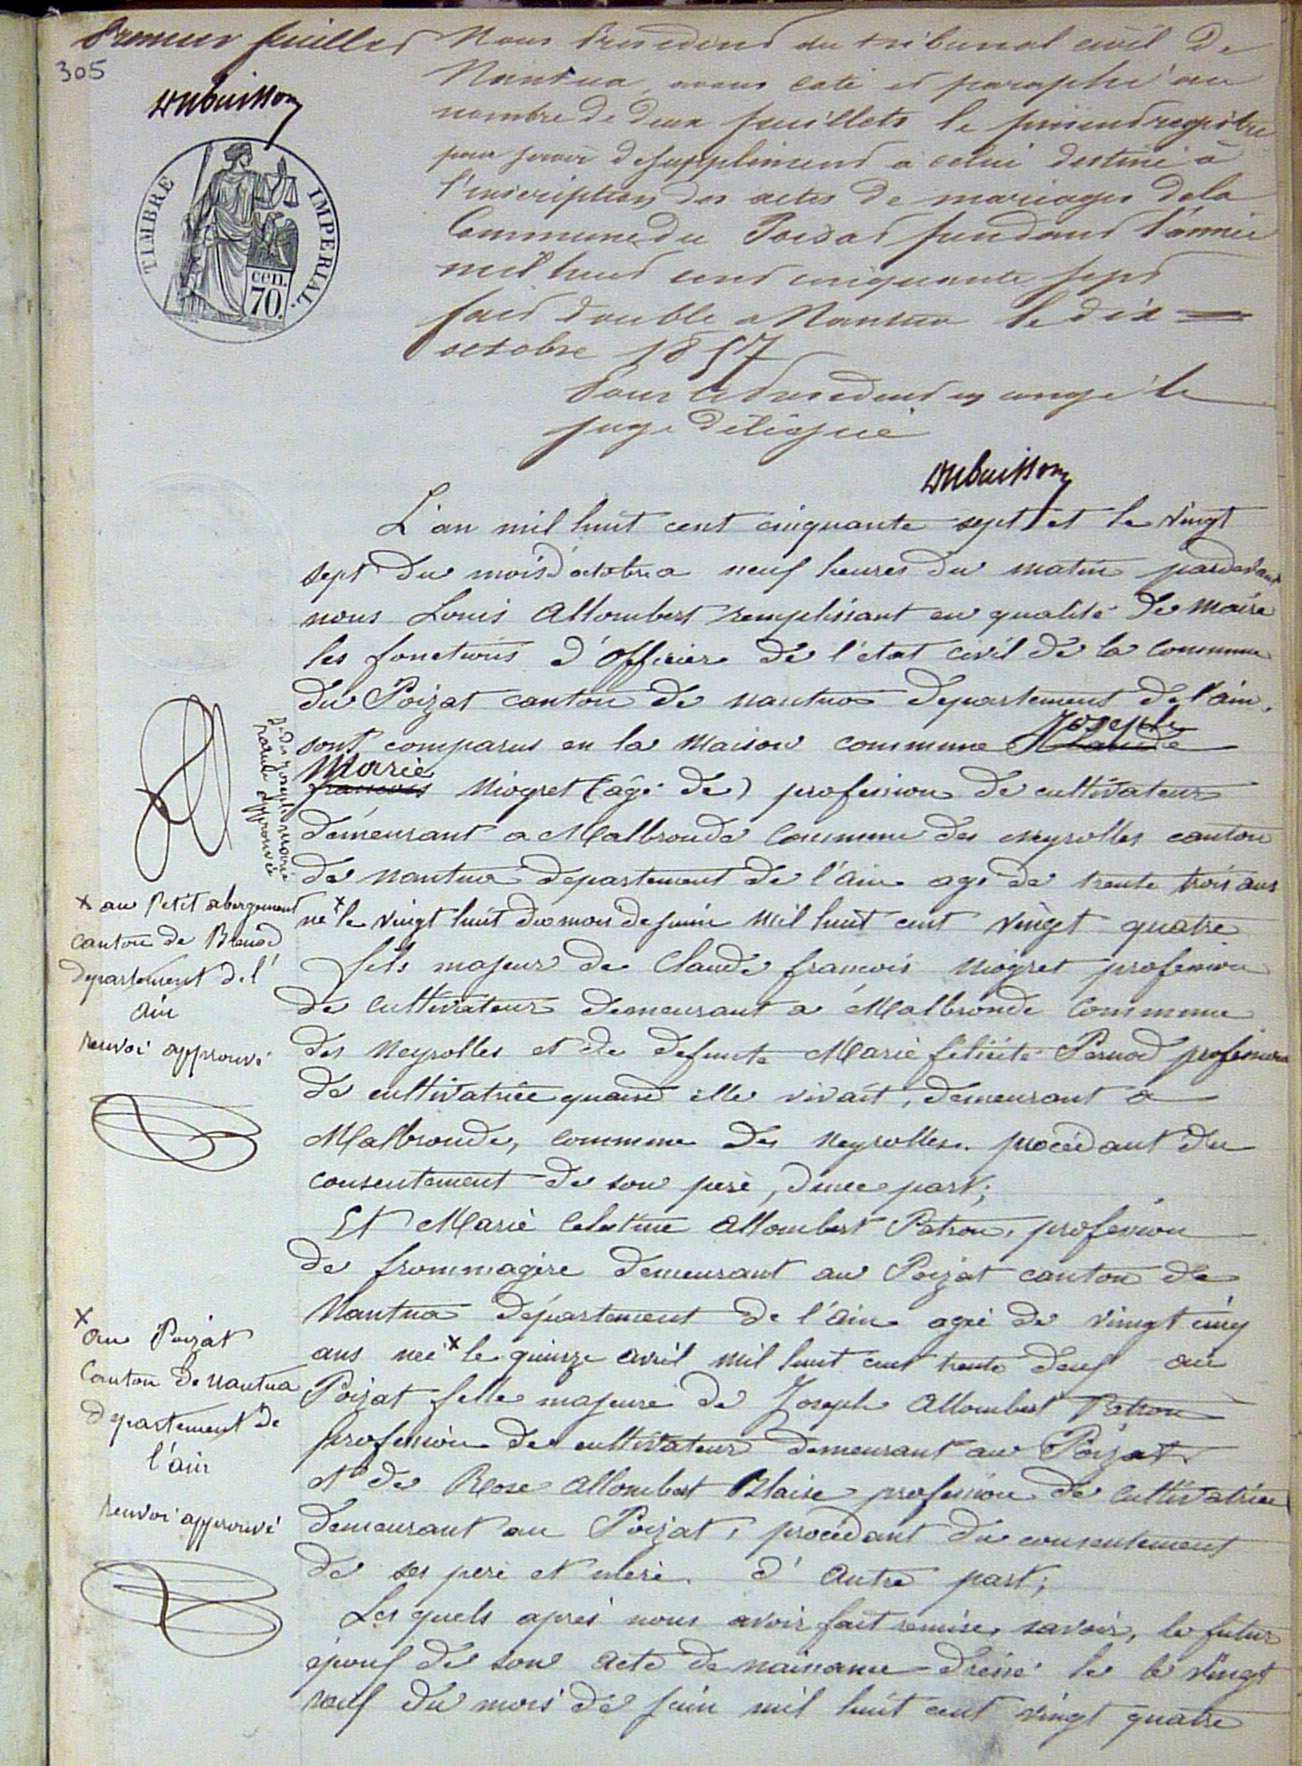 Premier feuillet
305
Dubuisson
TIMBRE IMPERIAL.
cen.
70.
Nous Président du tribunal civil de
Nantua, avons coté et paraphé au
nombre de deux feuillets le présent registre
pour servir de supplément a celui destiné à
l'inscription des actes de mariages de la
Commune du Poizat pendant l'année
mil huit cent cinquante sept
fait double a Nantua le dix
octobre 1857
Pour le Président en congé le
juge délégué
Dubuisson
L'an mil huit cent cinquante sept et le vingt
sept du mois d'octobre a neuf heures du matin pardevant
nous Louis Allombert remplissant en qualité de Maire
les fonctions d'officier de l'état civil de la commune
du Poizat canton de nantua departement de l'ain.
sont comparus en la Maison commune Joseph
Marie
francois Niogret (âgé de) profession de cultivateur
demeurant a Malbronde Commune des neyrolles canton
de nantua departement de l'Ain agé de trente trois ans
né x le vingt huit du mois de juin mil huit cent vingt quatre
fils majeur de Claude francois Niogret profession
de cultivateur demeurant a Malbronde Commune
des Neyrolles et de defunte Marie félicité Pernod profession
de cultivatrice quand elle vivait, demeurant a
Malbronde, Commune des neyrolles. procédant du
consentement de son père, d'une part;
Et Marie Celestine Allombert Patron, profession
de frommagère demeurant au Poizat canton de
Nantua département de l'ain agée de vingt cinq
ans née x le quinze avril mil huit cent trente deux au
Poizat fille majeure de Joseph Allombert Patron
profession de cultivateur demeurant au Poizat
et de Rose Allombert Blaise profession de cultivatrice
demeurant au Poizat, procédant du consentement
de ses père et mère. d'autre part;
Les quels après nous avoir fait remise, savoir, le futur
époux de son acte de naissance dressé le le vingt
neuf du mois de juin mil huit cent vingt quatre
x au Petit abergement
canton de Brenod
departement de l'
ain
renvoi approuvé
x
au Poizat
Canton de nantua
departement de
l'ain
renvoi approuvé